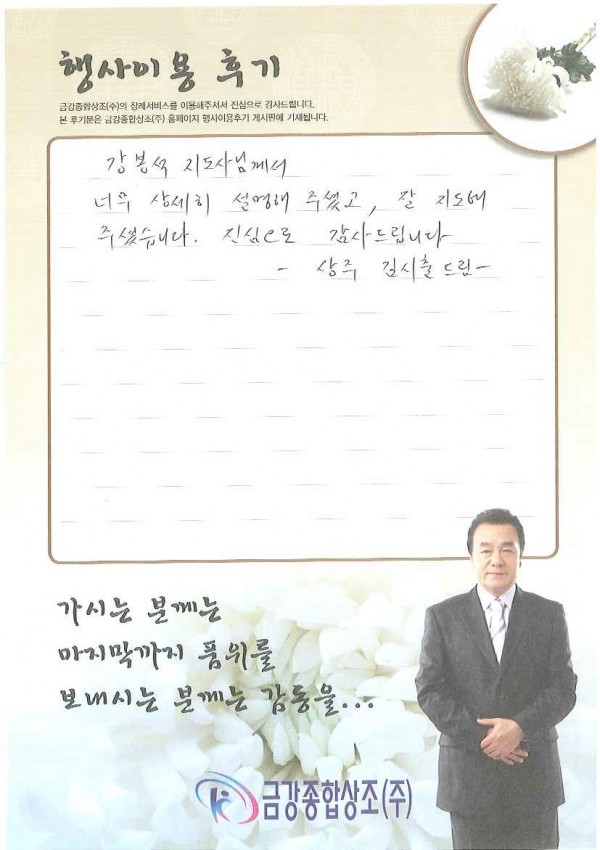 행사이용 후기
금강종합상조(주)의 장례서비스를 이용해주셔서 진심으로 감사드립니다.
본 후기문은 금강종합상조(주) 홈페이지 행사이용후기 게시판에 기재됩니다.
강봉석 지도사님께서
너무 상세히 설명해 주셨고, 잘 지도해
주셨습니다. 진심으로 감사드립니다
- 상주 김시출 드림-
가시는 분께는
마지막까지 품위를
보내시는 분께는 감동을...
금강종합상조(주)